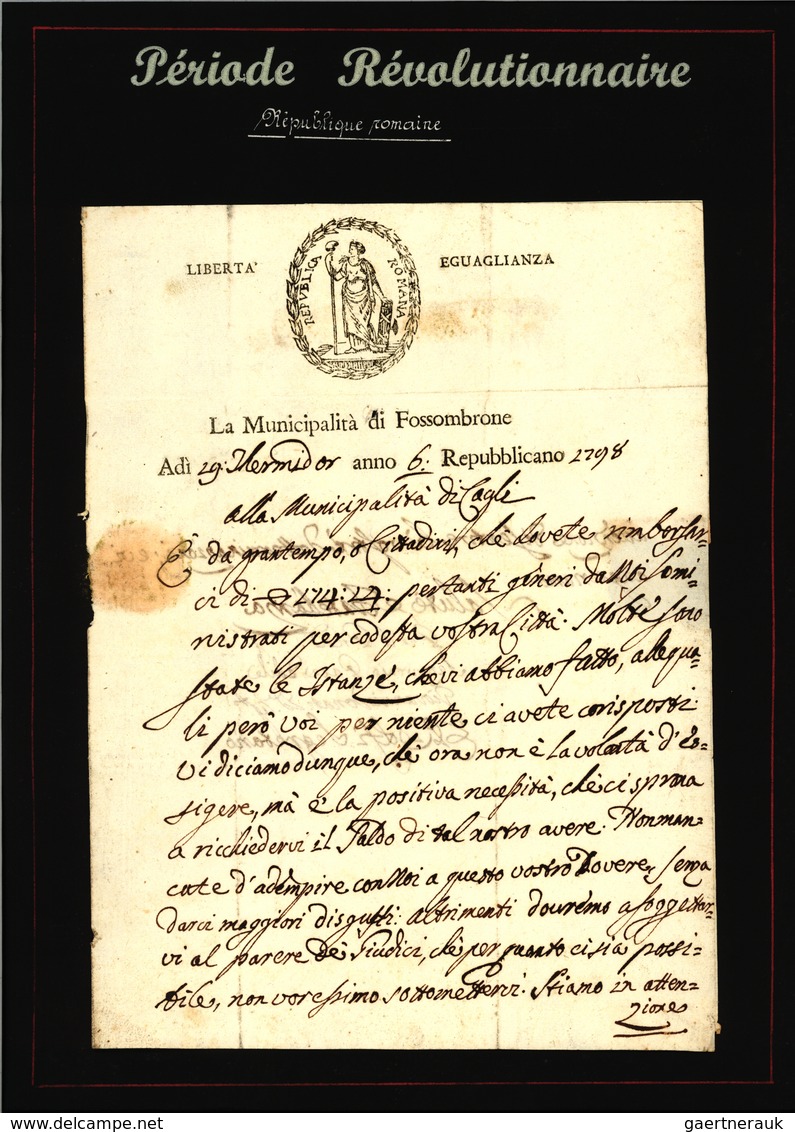 Période Révolutionnaire
République romaine
LIBERTA' EGUAGLIANZA
REPVBLICA ROMANA
La Municipalità di Fossombrone
Adì 29. Termidor anno 6. Repubblicano 1798
alla Municipalità di Cagli
E' da gran tempo, o Cittadini, che dovete rimborsar-
ci di 174:14: per tanti generi da Noi Somi-
nistrati per codesta vostra Città. Molte sono
state le Istanze, che vi abbiamo fatto, alle qua-
li però voi per niente ci avete corisposti
Vi diciamo dunque, che ora non è la volontà d'es-
sigere, mà è la positiva necessità, che ci sprona
a ricchiedervi il Saldo di tal nostro avere. Non man-
cate d'adempire con Noi a questo vostro Dovere, senza
darci maggiori disgusti: altrimenti douremo assoggettar-
vi al parere de' Giudici, che per quanto ci sia possi-
bile, non voressimo sottomettervi. Stiamo in atten-
zione
delcampe.net
gaertnerauk